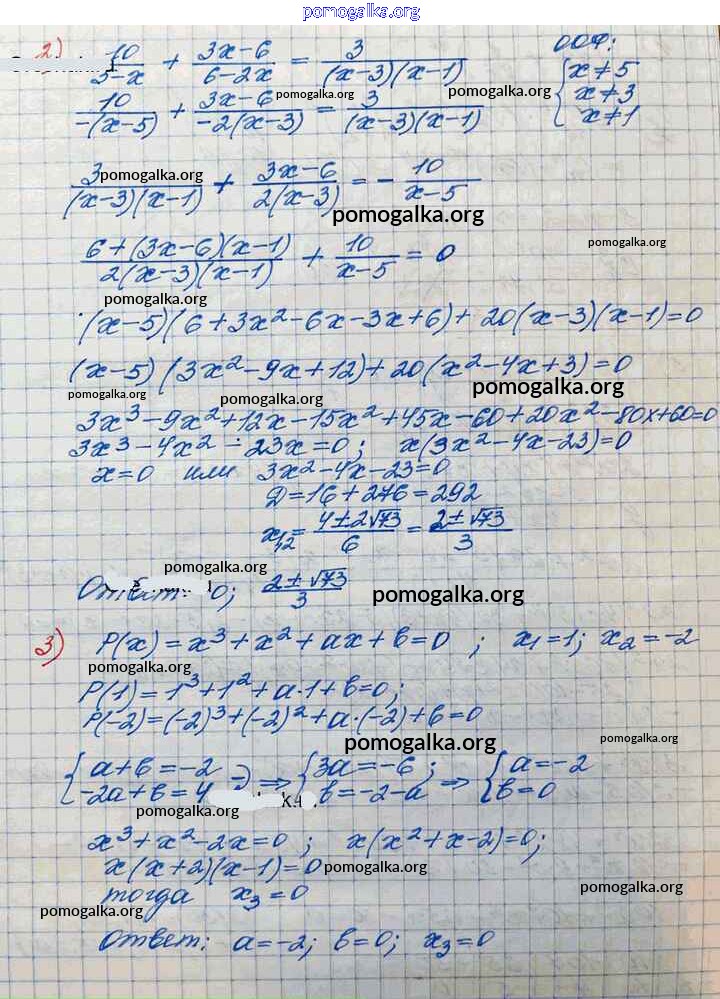 pomogalka.org
2) 10/(5-x) + (3x-6)/(6-2x) = 3/((x-3)(x-1))   ООФ:
{x≠5
x≠3
x≠1
10/(-(x-5)) + (3x-6)/(-2(x-3)) = 3/((x-3)(x-1))
pomogalka.org pomogalka.org
pomogalka.org
3/((x-3)(x-1)) + (3x-6)/(2(x-3)) = - 10/(x-5)
pomogalka.org
(6+(3x-6)(x-1))/(2(x-3)(x-1)) + 10/(x-5) = 0
pomogalka.org
pomogalka.org
(x-5)(6+3x²-6x-3x+6)+20(x-3)(x-1)=0
(x-5)(3x²-9x+12)+20(x²-4x+3)=0
pomogalka.org pomogalka.org pomogalka.org
3x³-9x²+12x-15x²+45x-60+20x²-80x+60=0
3x³-4x²-23x=0; x(3x²-4x-23)=0
x=0 или 3x²-4x-23=0
D=16+276=292
x₁,₂ = (4±2√73)/6 = (2±√73)/3
pomogalka.org
Ответ: 0; (2±√73)/3
pomogalka.org
3) P(x)=x³+x²+ax+b=0; x₁=1; x₂=-2
pomogalka.org
P(1)=1³+1²+a·1+b=0;
P(-2)=(-2)³+(-2)²+a·(-2)+b=0
pomogalka.org pomogalka.org
{a+b=-2
-2a+b=4 ⇒ {3a=-6;
b=-2-a ⇒ {a=-2
b=0
pomogalka.org
x³+x²-2x=0; x(x²+x-2)=0;
x(x+2)(x-1)=0 pomogalka.org
тогда x₃=0
pomogalka.org
pomogalka.org
Ответ: a=-2; b=0; x₃=0